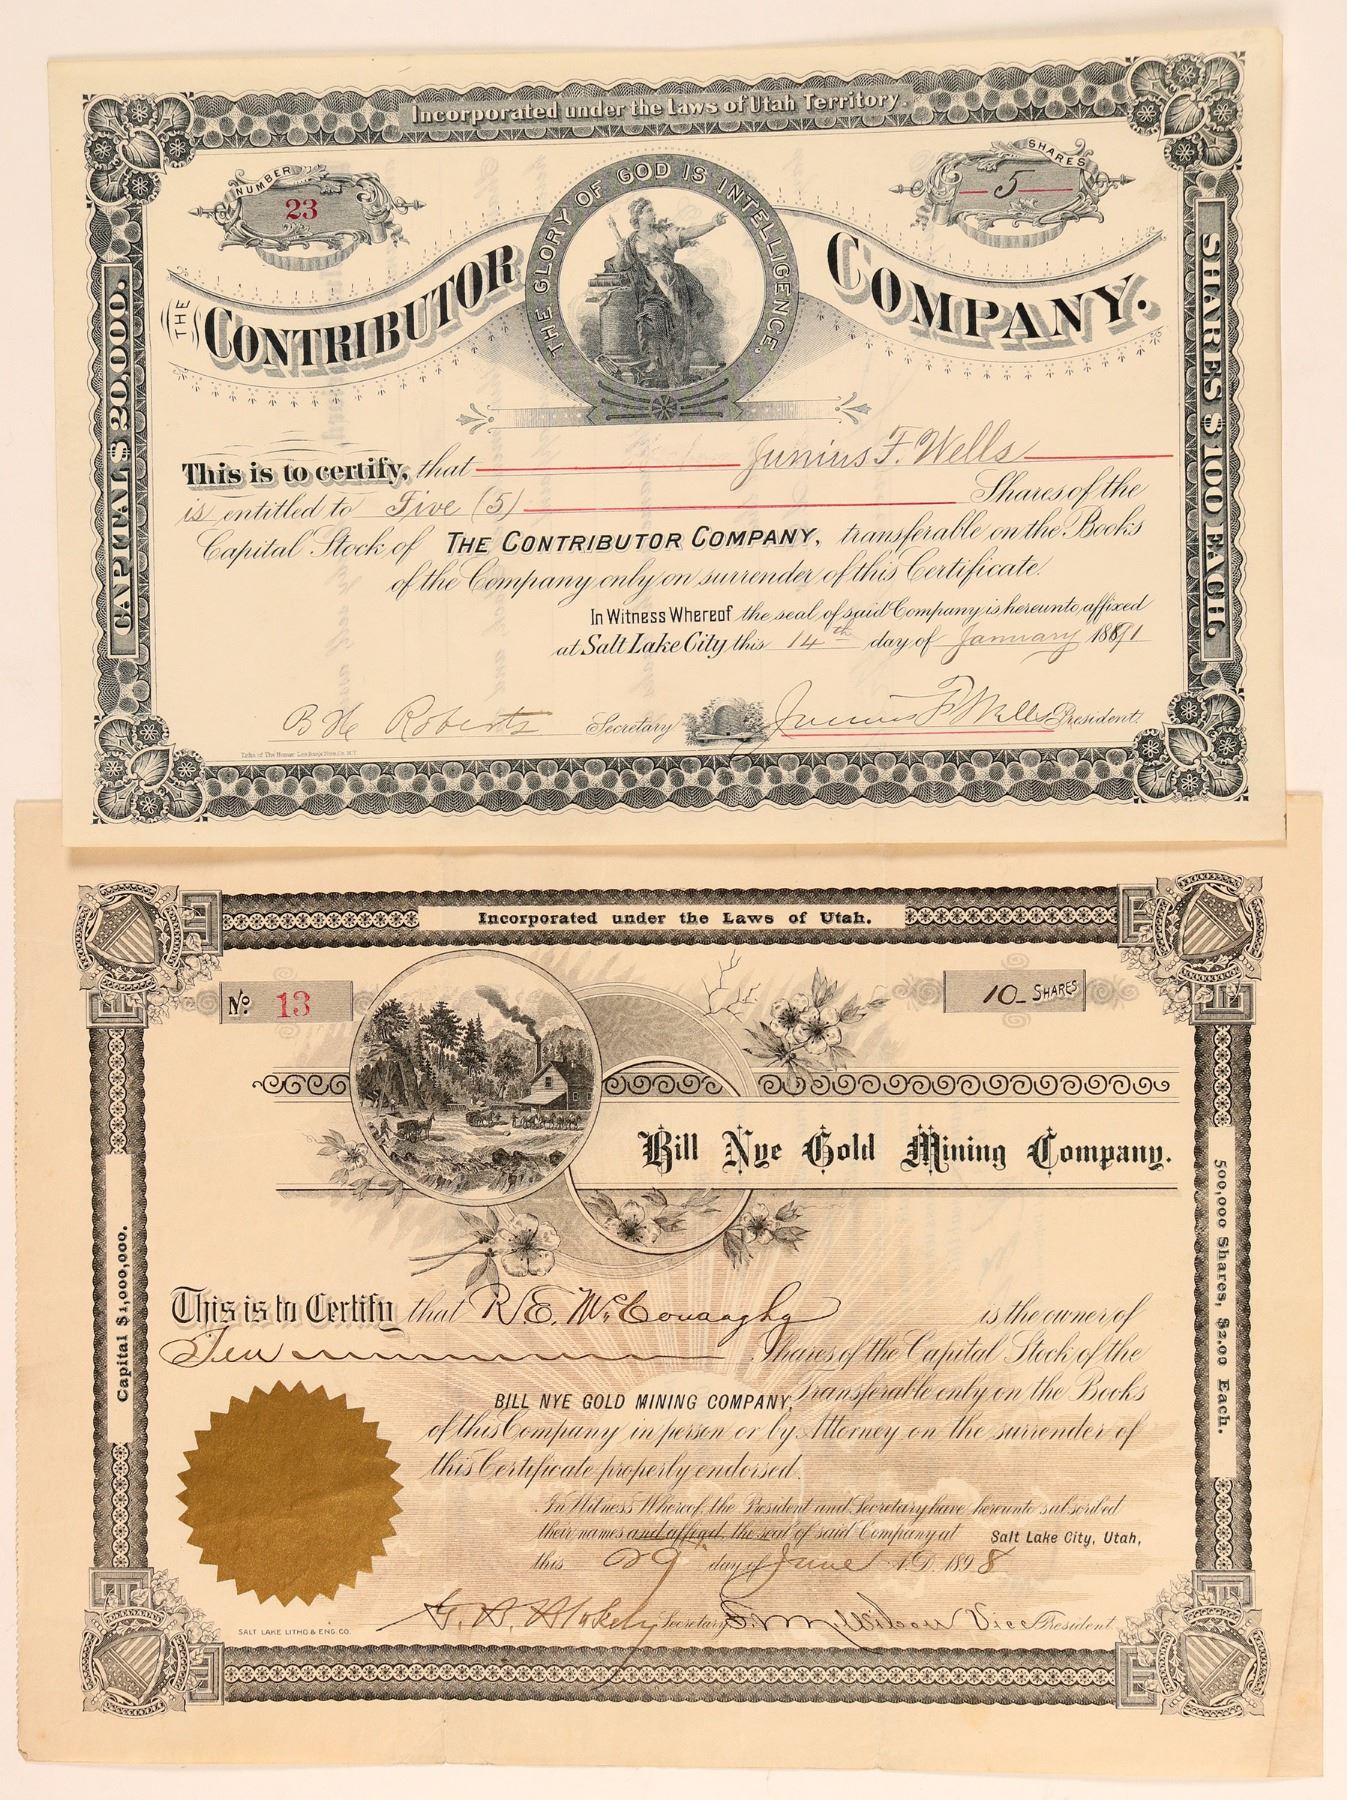 Incorporated under the Laws of Utah Territory.
NUMBER
23
SHARES
5
THE GLORY OF GOD IS INTELLIGENCE.
THE CONTRIBUTOR COMPANY.
CAPITAL $20,000.
SHARES $100 EACH.
This is to certify, that Junius F. Wells
is entitled to Five (5) Shares of the
Capital Stock of THE CONTRIBUTOR COMPANY, transferable on the Books
of the Company only on surrender of this Certificate.
In Witness Whereof the seal of said Company is hereunto affixed
at Salt Lake City this 14th day of January 1891
B H Roberts Secretary Junius F Wells President.
Incorporated under the Laws of Utah.
No. 13
10 SHARES
Bill Nye Gold Mining Company.
Capital $1,000,000.
500,000 Shares, $2.00 Each.
This is to Certify that R E. McConaaghy is the owner of
Ten Shares of the Capital Stock of the
BILL NYE GOLD MINING COMPANY, Transferable only on the Books
of this Company in person or by Attorney on the surrender of
this Certificate properly endorsed.
In Witness Whereof, the President and Secretary have hereunto subscribed
their names and affixed the seal of said Company at Salt Lake City, Utah,
this 29" day of June A.D. 1898
Secretary Vice President
SALT LAKE LITHO & ENG. CO.